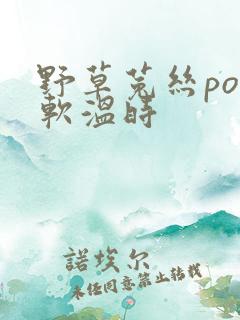 野草菟絲po
軟溫時
諾埃尔
未任同意禁止转载